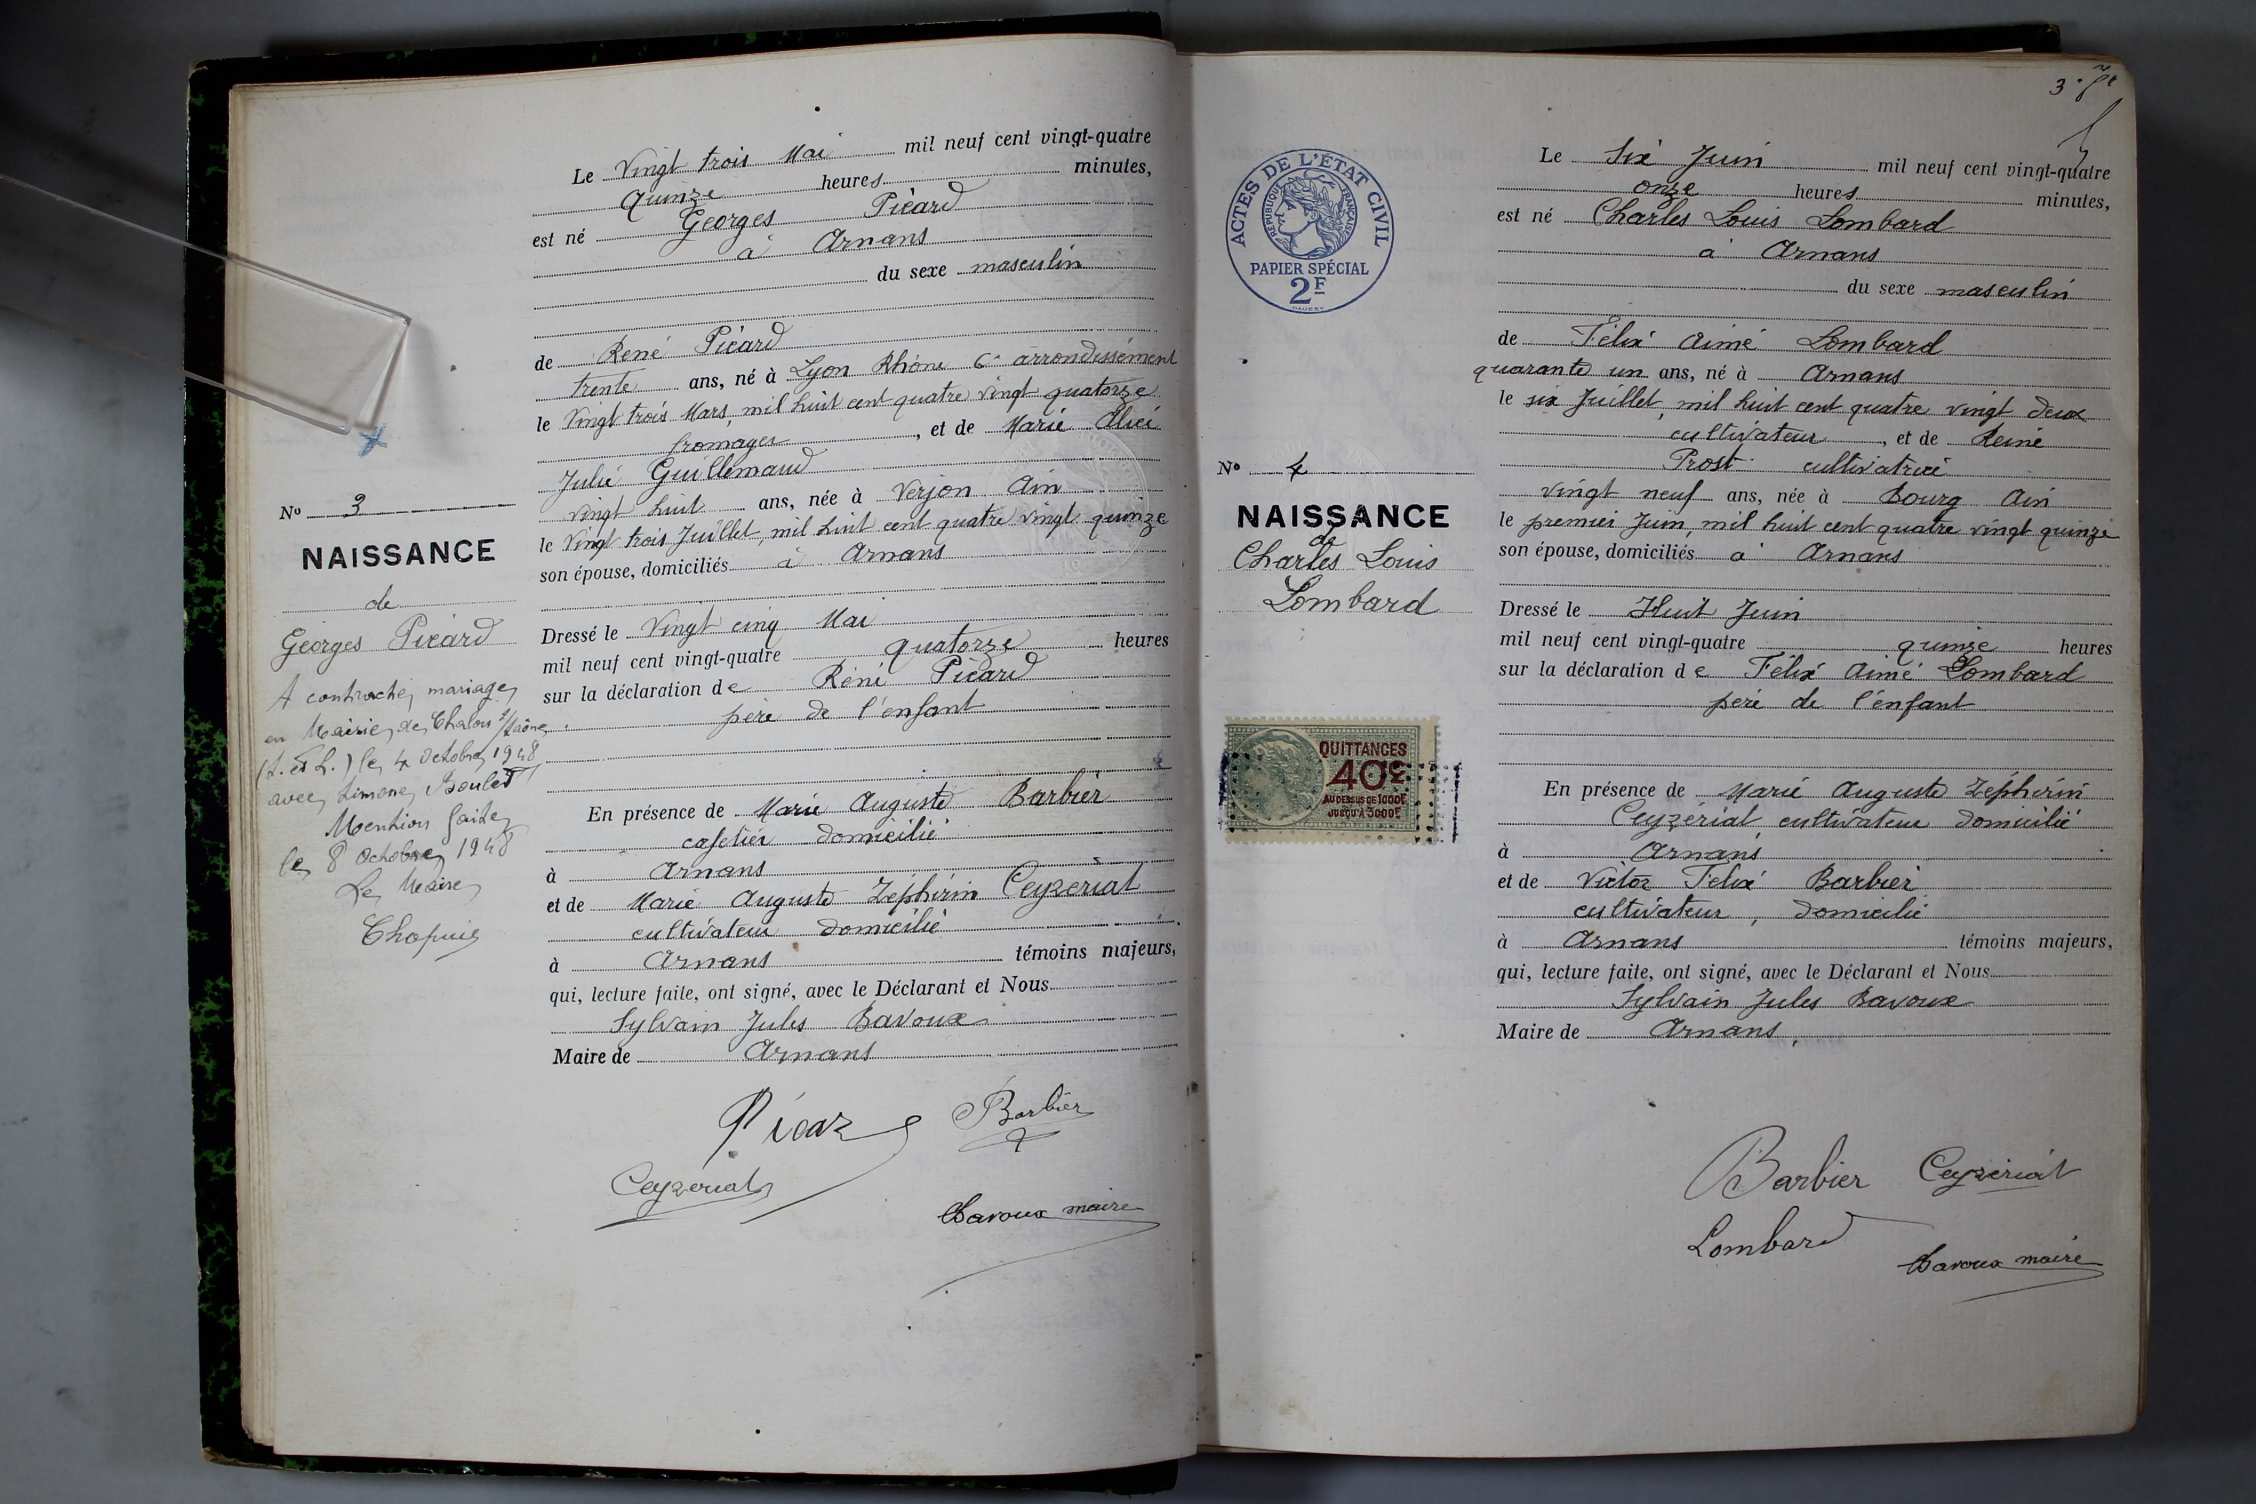 Le Vingt trois Mai mil neuf cent vingt-quatre
Quinze heures minutes,
est né Georges Picard
à Arnans
du sexe masculin
de René Picard
trente ans, né à Lyon Rhône 6e arrondissement
le Vingt trois Mars, mil huit cent quatre vingt quatorze
fromager, et de Marie Alice
Julie Guillemaud
vingt huit ans, née à Verjon Ain
le Vingt trois Juillet, mil huit cent quatre vingt quinze
son épouse, domiciliés à Arnans
Dressé le Vingt cinq Mai
mil neuf cent vingt-quatre quatorze heures
sur la déclaration de René Picard
père de l'enfant
En présence de Marie Auguste Barbier
cafetier domicilié
à Arnans
et de Marie Auguste Zéphirin Ceyzériat
cultivateur domicilié
à Arnans témoins majeurs,
qui, lecture faite, ont signé, avec le Déclarant et Nous
Sylvain Jules Bavoux
Maire de Arnans
Picard
Barbier
Ceyzeriat
Bavoux maire
No 3
NAISSANCE
de
Georges Picard
A contracté mariage
en Mairie de Chalon s/Saône
(S. et L.) le 4 octobre 1948
avec Simone Boulet
Mention faite
le 8 octobre 1948
Le Maire
3
ACTES DE L'ÉTAT CIVIL
RÉPUBLIQUE FRANÇAISE
PAPIER SPÉCIAL
2F
Le Six Juin mil neuf cent vingt-quatre
onze heures minutes,
est né Charles Louis Lombard
à Arnans
du sexe masculin
de Félix Aimé Lombard
quarante un ans, né à Arnans
le six Juillet, mil huit cent quatre vingt deux
cultivateur, et de Reine
Prost cultivatrice
vingt neuf ans, née à Bourg Ain
le premier Juin, mil huit cent quatre vingt quinze
son épouse, domiciliés à Arnans
Dressé le Huit Juin
mil neuf cent vingt-quatre quinze heures
sur la déclaration de Félix Aimé Lombard
père de l'enfant
En présence de Marie Auguste Zéphirin
Ceyzériat cultivateur domicilié
à Arnans
et de Victor Félix Barbier
cultivateur, domicilié
à Arnans témoins majeurs,
qui, lecture faite, ont signé, avec le Déclarant et Nous
Sylvain Jules Bavoux
Maire de Arnans
Barbier
Ceyzériat
Lombard
Bavoux maire
No 4
NAISSANCE
de
Charles Louis
Lombard
QUITTANCES
40c
AU DESSUS DE 1000F
JUSQU'À 3000F